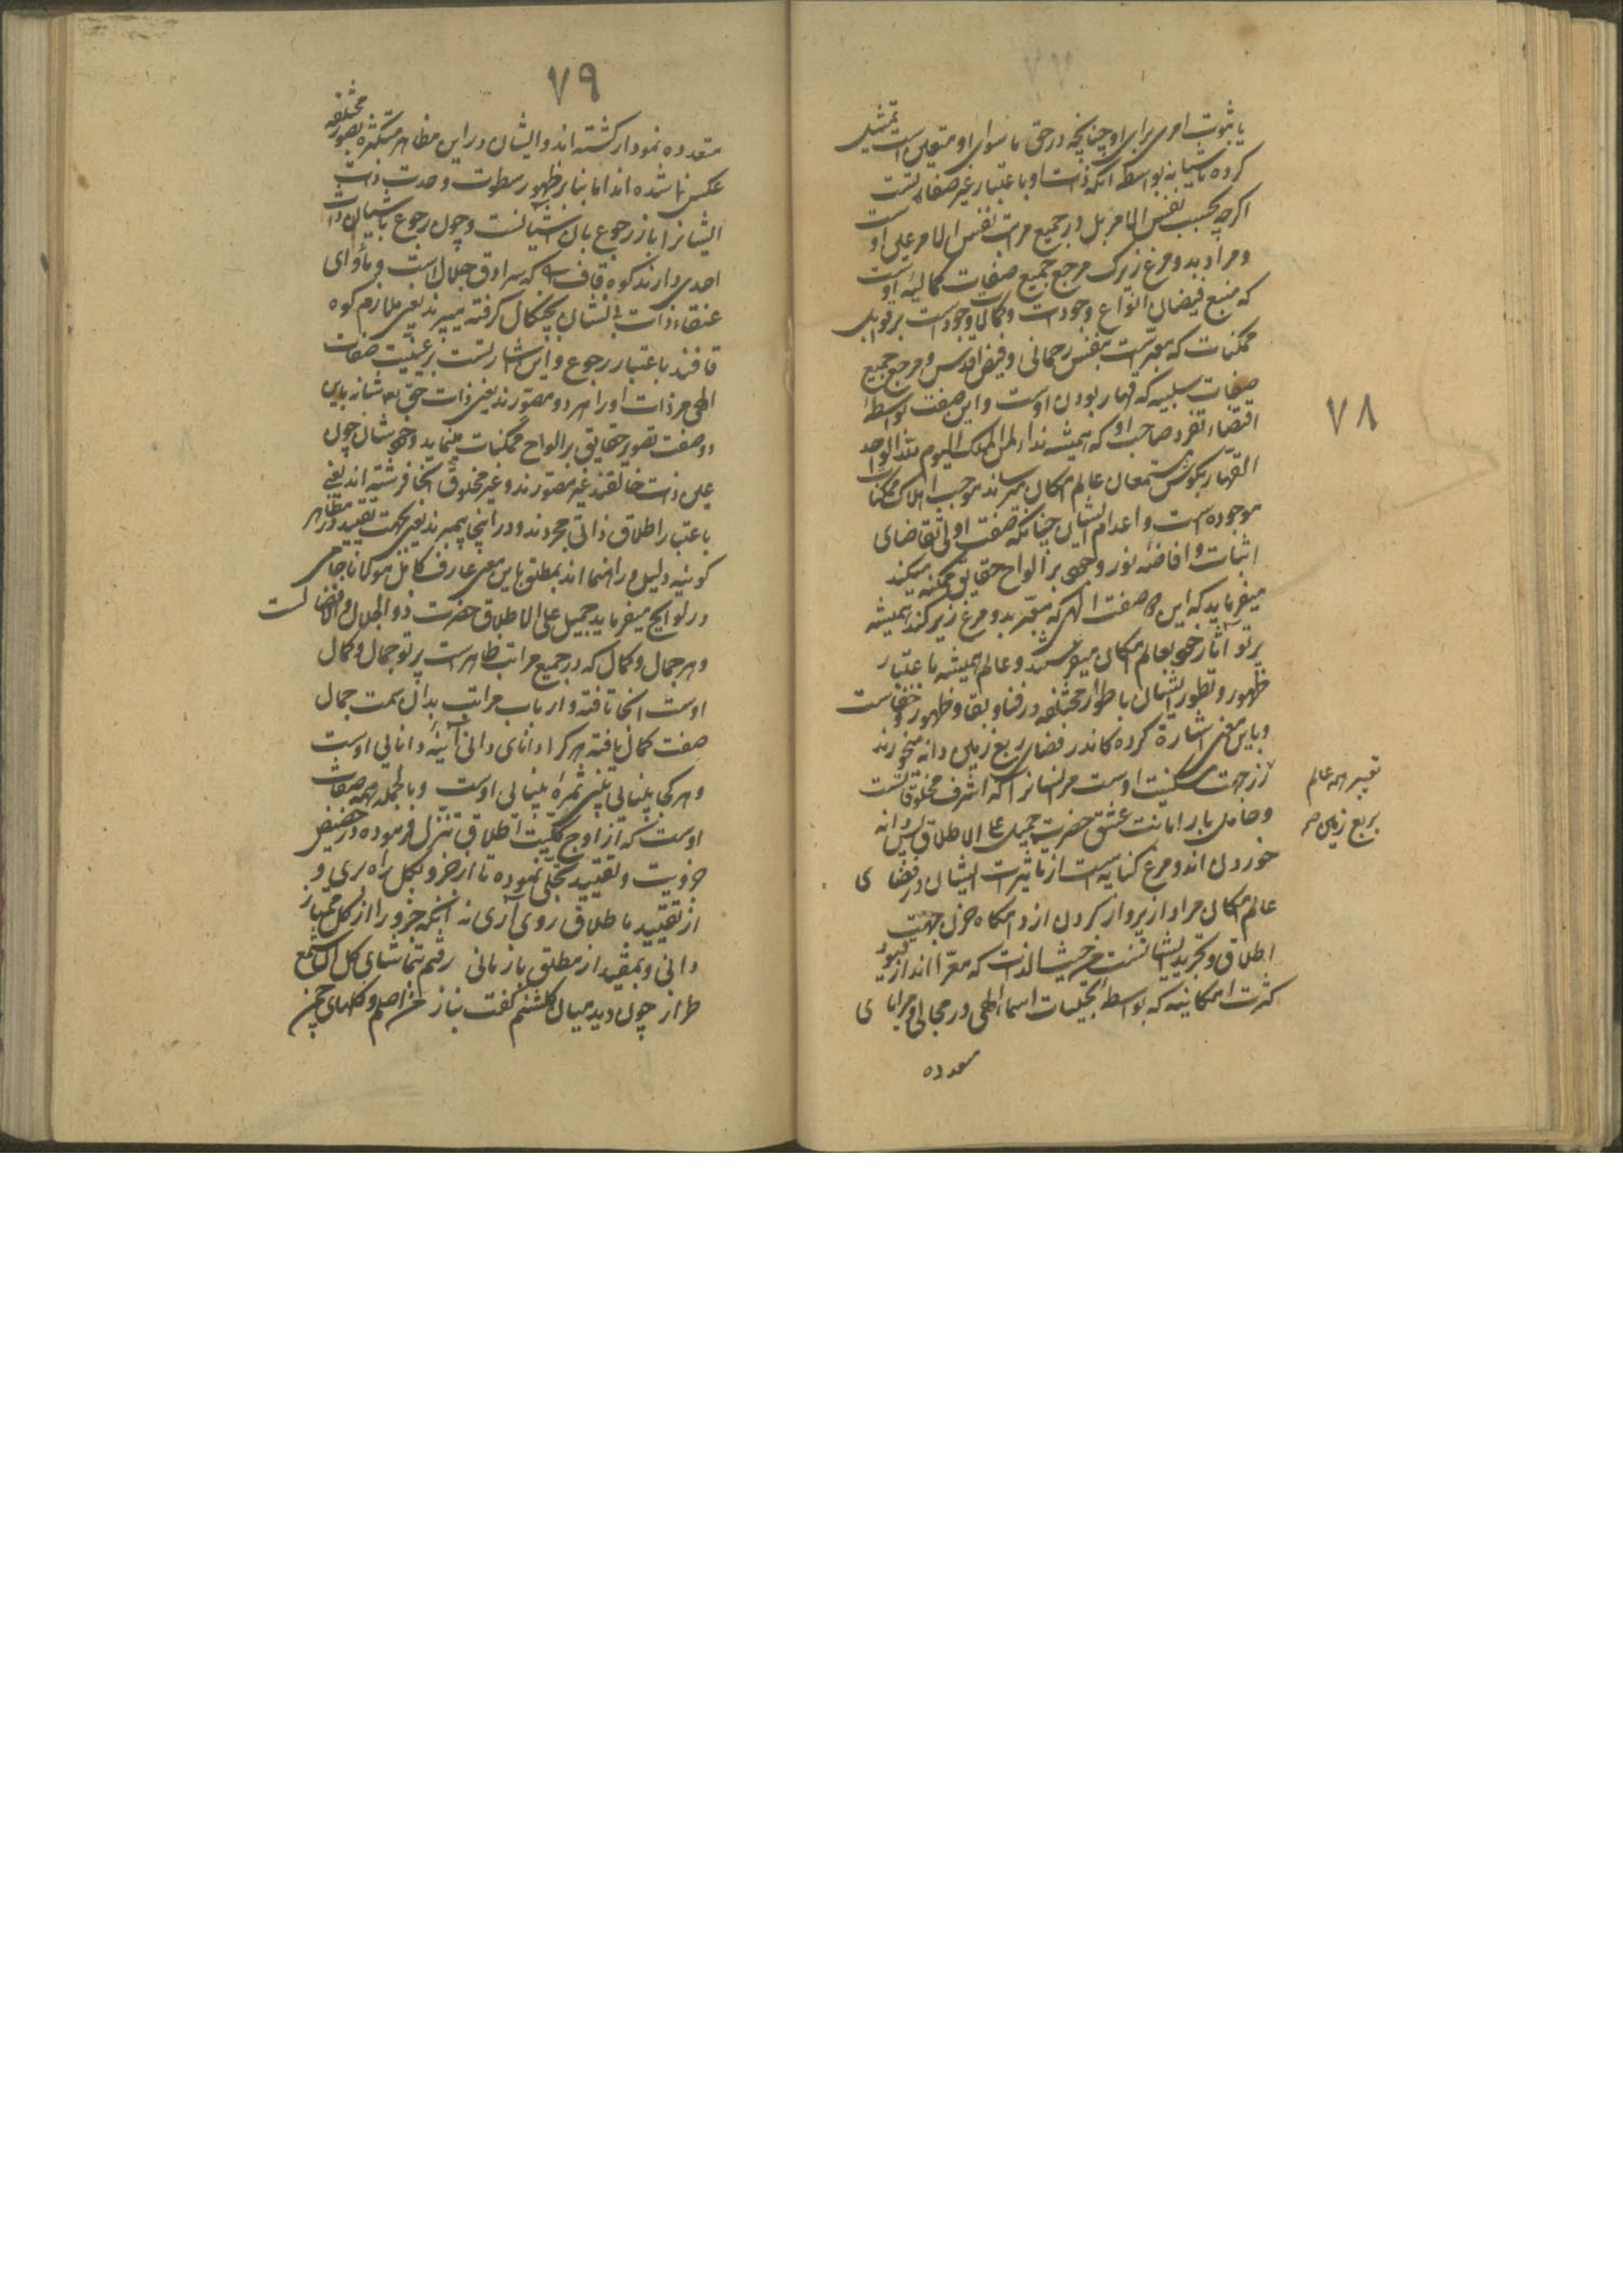 ۷۸
یا ثبوت امری برای او چنانچه در حق ماسوای او متعین است تمثیل
کرده بآشیانه بواسطه آنکه ذات او باعتبار غیر صفاتست
اگرچه بحسب نفس الامر بل در جمیع مراتب نفس الامر علی اوست
و مراد بدو مرغ زیرک مرجع جمیع صفات کمالیه اوست
که منبع فیضان انواع وجودات و کمالات وجوداست بر قوابل
ممکنات که معبرست بنفس رحمانی و فیض اقدس و مرجع جمیع
صفات سلبیه که قهار بودن اوست و این صفت بواسطه
اقتضاء تفرد صاحب او که همیشه نداء لمن الملک الیوم لله الواحد
القهار بگوش مستمعان عالم امکان میرساند موجب اهلاک ممکنات
موجوده است و اعدام ایشان چنانکه صفت اولی تقاضای
اثبات و افاضه نور وجود بر الواح حقایق ممکنه میکند
میفرماید که این دو صفت الهی که معبر بدو مرغ زیرکند همیشه
پرتو آثار خود بعالم امکان میفرستند و عالم همیشه باعتبار
ظهور و تطور ایشان باطوار مختلفه در فنا و بقا و ظهور و خفاست
و باین معنی اشاره کرده کاندر فضای ربع زمین دانه میخورند
از جهت مسکنیت اوست مر انسانرا که اشرف مخلوقاتست
و حامل بار امانت عشق حضرت جمیل علی الاطلاق پس دانه
خوردن اندو مرغ کنایه است از تاثیرات ایشان در فضای
عالم امکان مراد از پرواز کردن از دامگاه حزن جهت
اطلاق و تجرید ایشانست من حیث الذات که معرا اند از قیود
کثرت امکانیه که بواسطه تجلیات اسماء الهی در مجالی و مرایای
متعدده
تعبیر از عالم
بربع زمین
۷۹
متعدده نمودار گشته اند و ایشان در این مظاهر متکثره بصور مختلفه
عکس نما شده اند اما بنا بر ظهور سطوت وحدت ذات
ایشانرا باز رجوع بآن آشیانست و چون رجوع بآشیان ذات
احدی دارند کوه قاف که سرادق جلال است و مأوای
عنقاء ذات بی نشان بچنگال گرفته میپرند یعنی ملازم کوه
قافند باعتبار رجوع و این اشارتست بر عینیت صفات
الهی مر ذات او را هر دو مصورند یعنی ذات حق تعالی شانه باین
دو صفت تصویر حقایق بر الواح ممکنات مینماید و خود ایشان چون
عین ذات خالقند غیر مصورند و غیر مخلوق آنجا فرشته اند یعنی
باعتبار اطلاق ذاتی مجردند و در اینجا پیمبرند یعنی بجهت تقیید در مظاهر
کونیه دلیل و راهنما اند بمطلق باین معنی عارف کامل مولانا جامی
در لوایح میفرماید جمیل علی الاطلاق حضرت ذو الجلال و الافضالست
و هر جمال و کمال که در جمیع مراتب ظاهرست پرتو جمال و کمال
اوست آنجا تافته و ارباب مراتب بدان سمت جمال
صفت کمال یافته هر کرا دانای دانی آئینه دانایی اوست
و هر کجا بینایی بینی ثمره بینایی اوست و بالجمله همه صفات
اوست که از اوج کلیت اطلاق تنزل فرموده در حضیض
جزویت و تقیید تجلی نموده تا از جزو بکل راه بری و
از تقیید باطلاق روی آری نه آنکه جزو را از کل ممتاز
دانی و بمقید از مطلق بازمانی رفتم بتماشای گل آن شمع
طراز چون دید میان گلشنم گفت بناز من اصلم و گلهای چمن